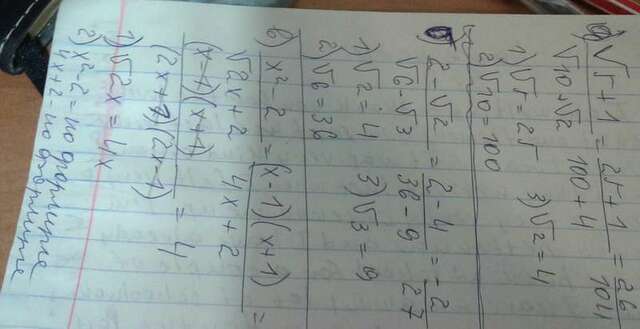 а) √5 + 1 / √10 + √2 = 25 + 1 / 100 + 4 = 26 / 104
1) √5 = 25 3) √2 = 4
2) √10 = 100
2 - √2 / √6 - √3 = 2 - 4 / 36 - 9 = -2 / 27
1) √2 = 4 3) √3 = 9
2) √6 = 36
в) x² - 2 / √2x + 2 = (x - 1)(x + 1) / 4x + 2 =
(x - 1)(x + 1) / (2x + 1)(2x - 1) = 4
1) √2x = 4x
2) x² - 2 = по формуле
4x + 2 - по формуле